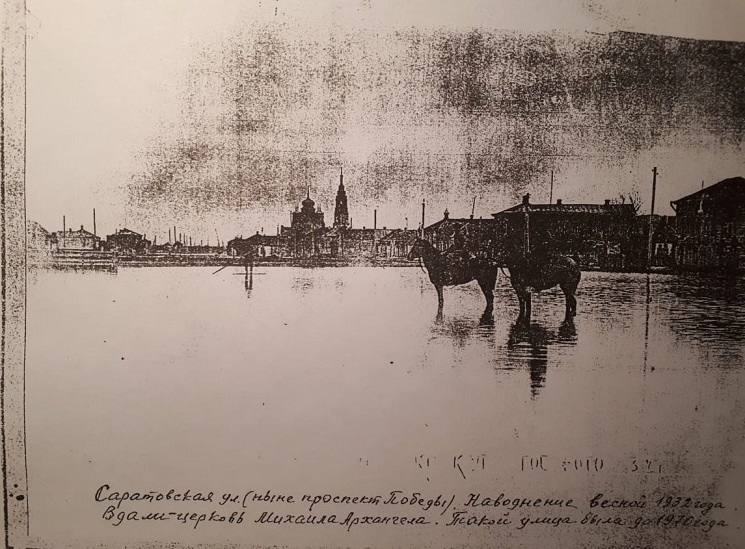 ГОС ФОТО
Саратовская ул. (ныне проспект Победы). Наводнение весной 1932 года.
Вдали-церковь Михаила Архангела. Такой улица была до 1970 года.